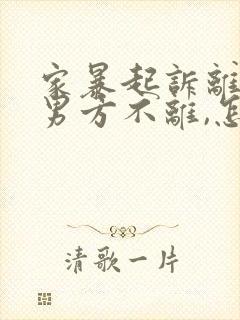 家暴起訴離
男方不離,怎
清歌一片